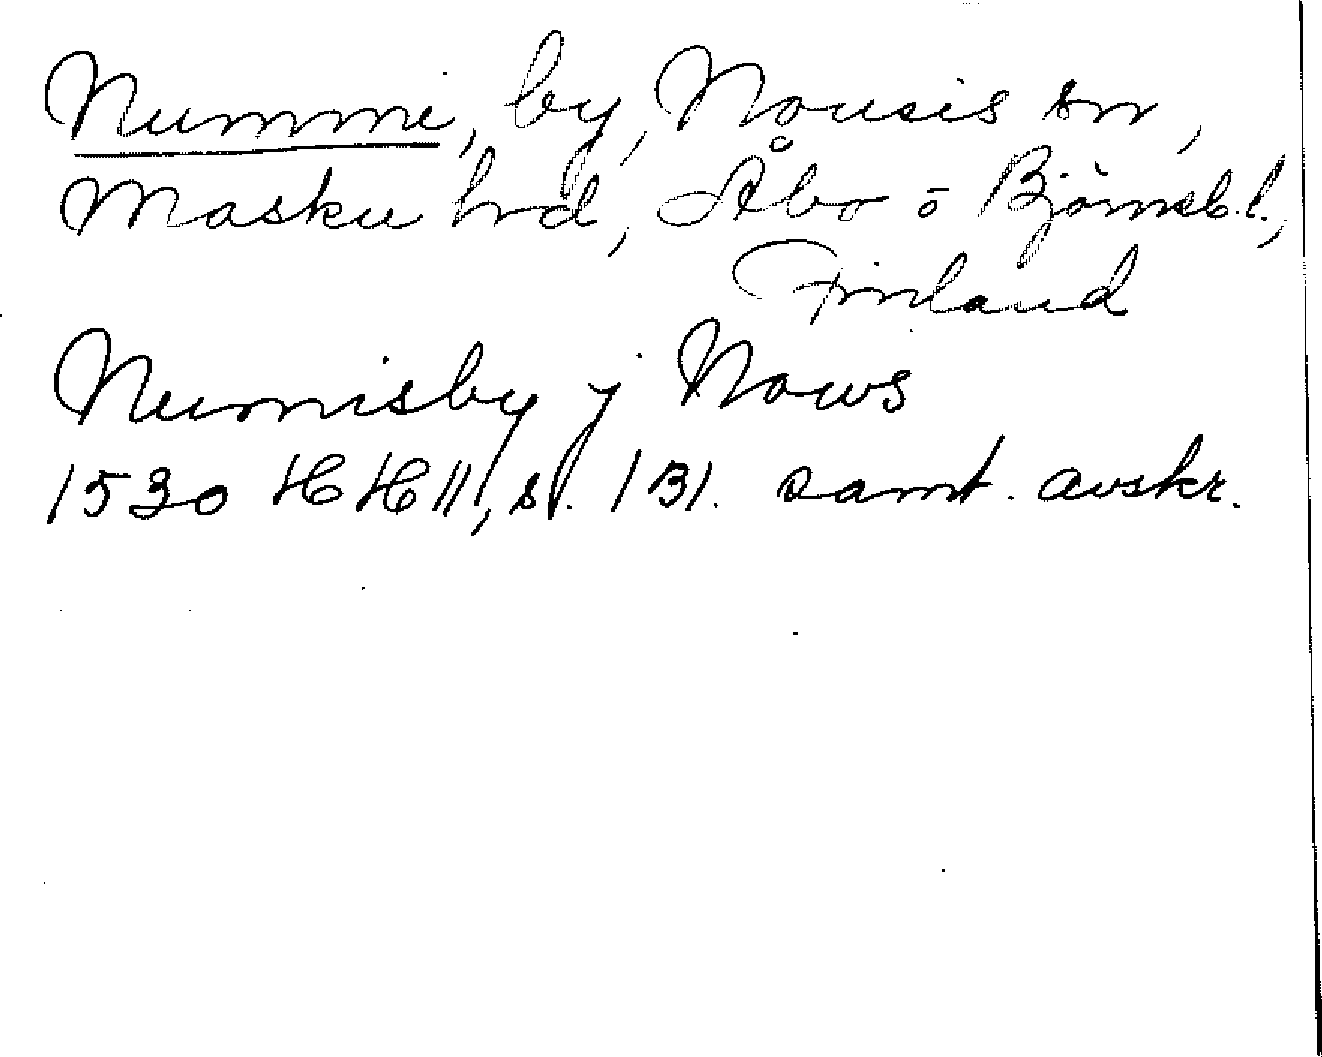 Nummi, by, Nousis sn,
Masku hrd, Åbo o Björneb.l.,
Finland
Numisby j Nows
1530 HH II, s. 131. samt. avskr.